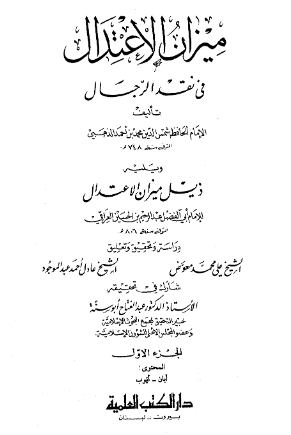 ميزان الاعتدال
في نقد الرجال
تأليف
الإمام الحافظ شمس الدين محمد بن أحمد الذهبي
المتوفى سنة ٧٤٨ هـ
ويليه
ذيل ميزان الاعتدال
للإمام أبي الفضل عبد الرحيم بن الحسين العراقي
المتوفى سنة ٨٠٦ هـ
دراسة وتحقيق وتعليق
الشيخ علي محمد معوض الشيخ عادل أحمد عبد الموجود
شارك في تحقيقه
الأستاذ الدكتور عبد الفتاح أبو سنة
خبير التحقيق بمجمع البحوث الإسلامية
وعضو المجلس الأعلى للشؤون الإسلامية
الجزء الأول
المحتوى:
أبان - ثهوب
دار الكتب العلمية
بيروت - لبنان